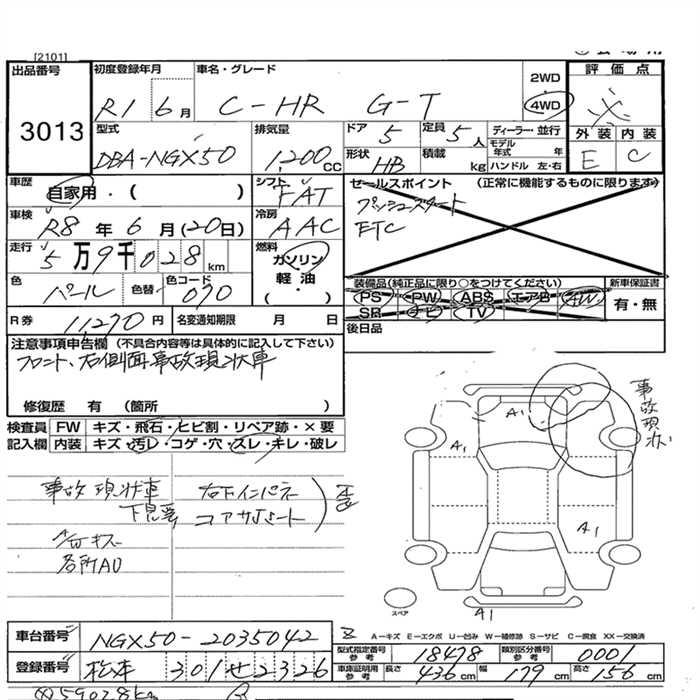 [2101]
出品番号 3013
初度登録年月 R1 6月
車名・グレード C-HR G-T
2WD
4WD
評価点
外装 内装
E C
型式 DBA-NGX50
排気量 1,200 CC
ドア 5
定員 5人
形状 HB
積載 kg
ディーラー・並行
モデル年式 年
ハンドル 左・右
車歴 自家用・( )
シフト FAT
セールスポイント (正常に機能するものに限ります)
プッシュスタート
ETC
車検 R8年 6月(20日)
冷房 AAC
走行 5万9千028km
燃料 ガソリン
軽油
( ・ )
色 パール
色替
色コード 070
装備品(純正品に限り○をつけてください)
PS PW ABS エアB AW
SR ナビ TV
新車保証書
有・無
R券 11,270円
名変通知期限 月 日
後日品
注意事項申告欄 (不具合内容等は具体的に記入して下さい)
フロント、右側面事故現状車
修復歴 有 (箇所 )
検査員記入欄
FW キズ・飛石・ヒビ割・リペア跡・×要
内装 キズ・汚レ・コゲ・穴・スレ・キレ・破レ
事故現状車
下見要
右下インパネ
コアサポート
歪
各所AU
事故現状
A1
A1
A1
A1
スペア
A-キズ E-エクボ U-凹み W-補修跡 S-サビ C-腐食 XX-交換済
車台番号 NGX50-2035042
登録番号 松本 301 せ 2326
型式指定番号参考 18478
類別区分番号参考 0001
車庫証明用参考 長さ 436cm 幅 179cm 高さ 156cm
59028km